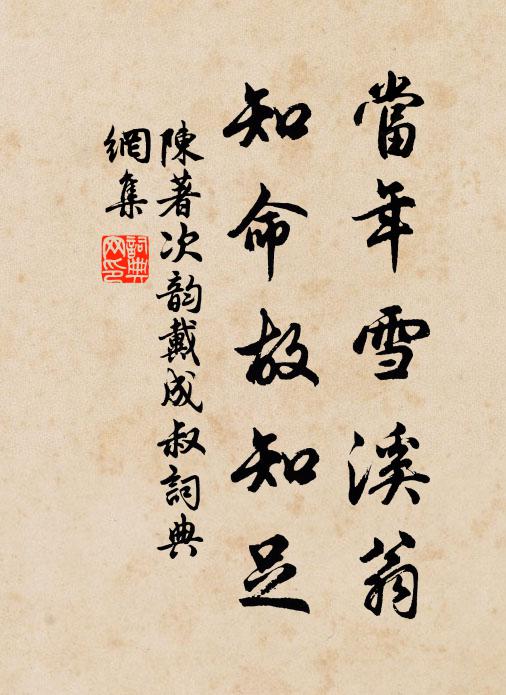 當年雪溪翁
知命故知足
陳著次韵戴成叔詞典
網集
詞典网印